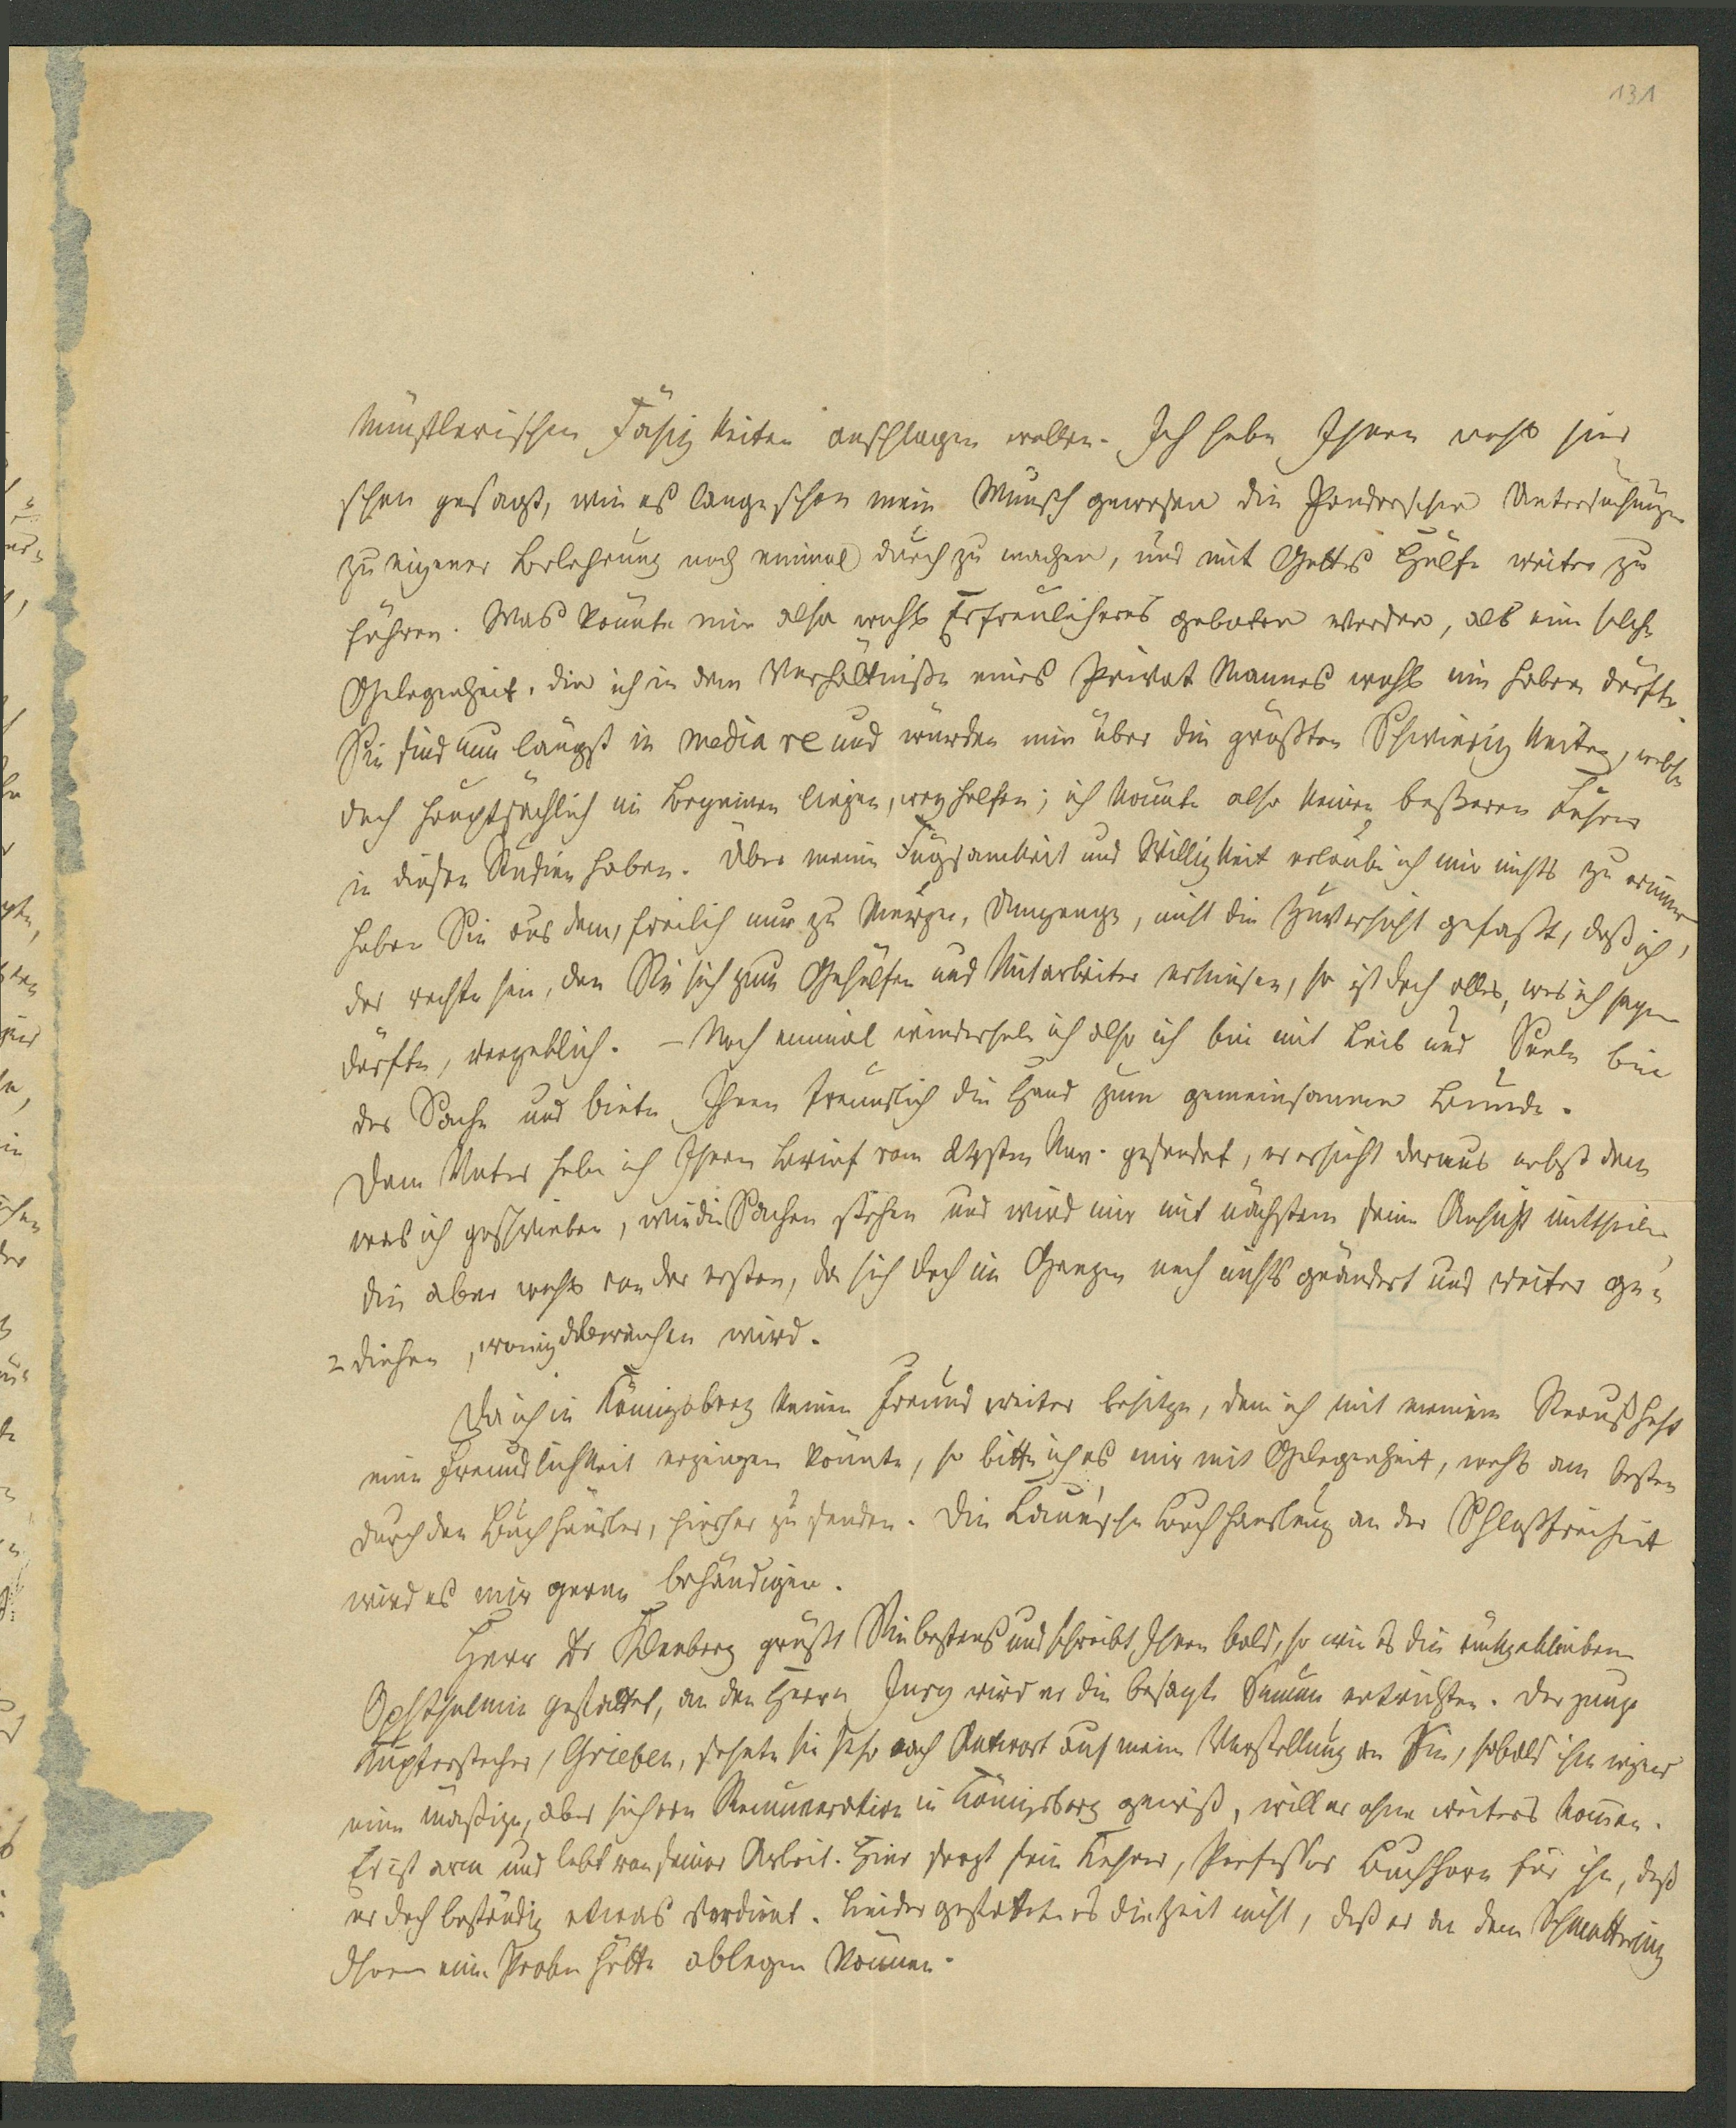 131
künstlerischen Fähigkeiten anschlagen wollen. Ich habe Ihnen wohl hier
schon gesagt, wie es lange schon mein Wunsch gewesen die Panderschen Untersuchungen
zu eigener Belehrung noch einmal durch zu machen, und mit Gottes Hülfe weiter zu
führen. Was könnte mir also wohl Erfreulicheres geboten werden, als eine solche
Gelegenheit, die ich in dem Verhältnisse eines Privat Mannes wohl nie haben dürfte.
Sie sind nun längst in media re und würden mir über die größten Schwierigkeiten, welche
doch hauptsächlich im Beginnen liegen, weg helfen; ich könnte also keinen besseren Führer
in diesen Studien haben. Über meine Fügsamkeit und Willigkeit erlaube ich mir nichts zu erinnern
haben Sie aus dem, freilich nur zu kurzen, Umgange, nicht die Zuversicht gefaßt, daß ich,
der rechte sei, den Sie sich zum Gehülfen und Mitarbeiter erkiesen, so ist doch alles, was ich sagen
dürfte, vergeblich. – Noch einmal wiederhole ich also ich bin mit Leib und Seele bei
der Sache und biete Ihnen freundlich die Hand zum gemeinsamen Bunde.
Dem Vater habe ich Ihren Brief vom Nov. gesendet, er ersieht daraus nebst dem
was ich geschrieben, wie die Sachen stehen und wird mir mit nächstem seine Ansicht mittheilen,
die aber wohl von der ersten, da sich doch im Ganzen noch nichts geändert und weiter ge-
diehen, wenig abweichen wird.
Da ich in Königsberg keinen Freund weiter besitze, dem ich mit meinem Strauß heft
eine Freundlichkeit erzeigen könnte, so bitte ich es mir mit Gelegenheit, wohl am besten
durch den Buchhändler, hierher zu senden. Die Laue'sche Buchhandlung an der Schloßfreiheit
wird es mir gerne behändigen.
Herr Dr grüßt Sie bestens und schreibt Ihnen bald, so wie es die rückgebliebene
Ophthalmie gestattet, an den Herrn Jury wird er die besagte Summe entrichten. Der junge
Kupferstecher, Grieben, sehnte sich sehr nach Antwort auf meine Vorstellung an Sie, sobald ihm irgend
eine mäßige, aber sichere Remuneration in Königsberg gewiß, will er ohne weiters kommen.
Er ist arm und lebt von seiner Arbeit. Hier sorgt sein Lehrer, Professor Buchhorn für ihn, daß
er doch beständig etwas verdient. Leider gestattete es die Zeit nicht, daß er an dem Schmetterling
Ihnen eine Probe hätte ablegen können.